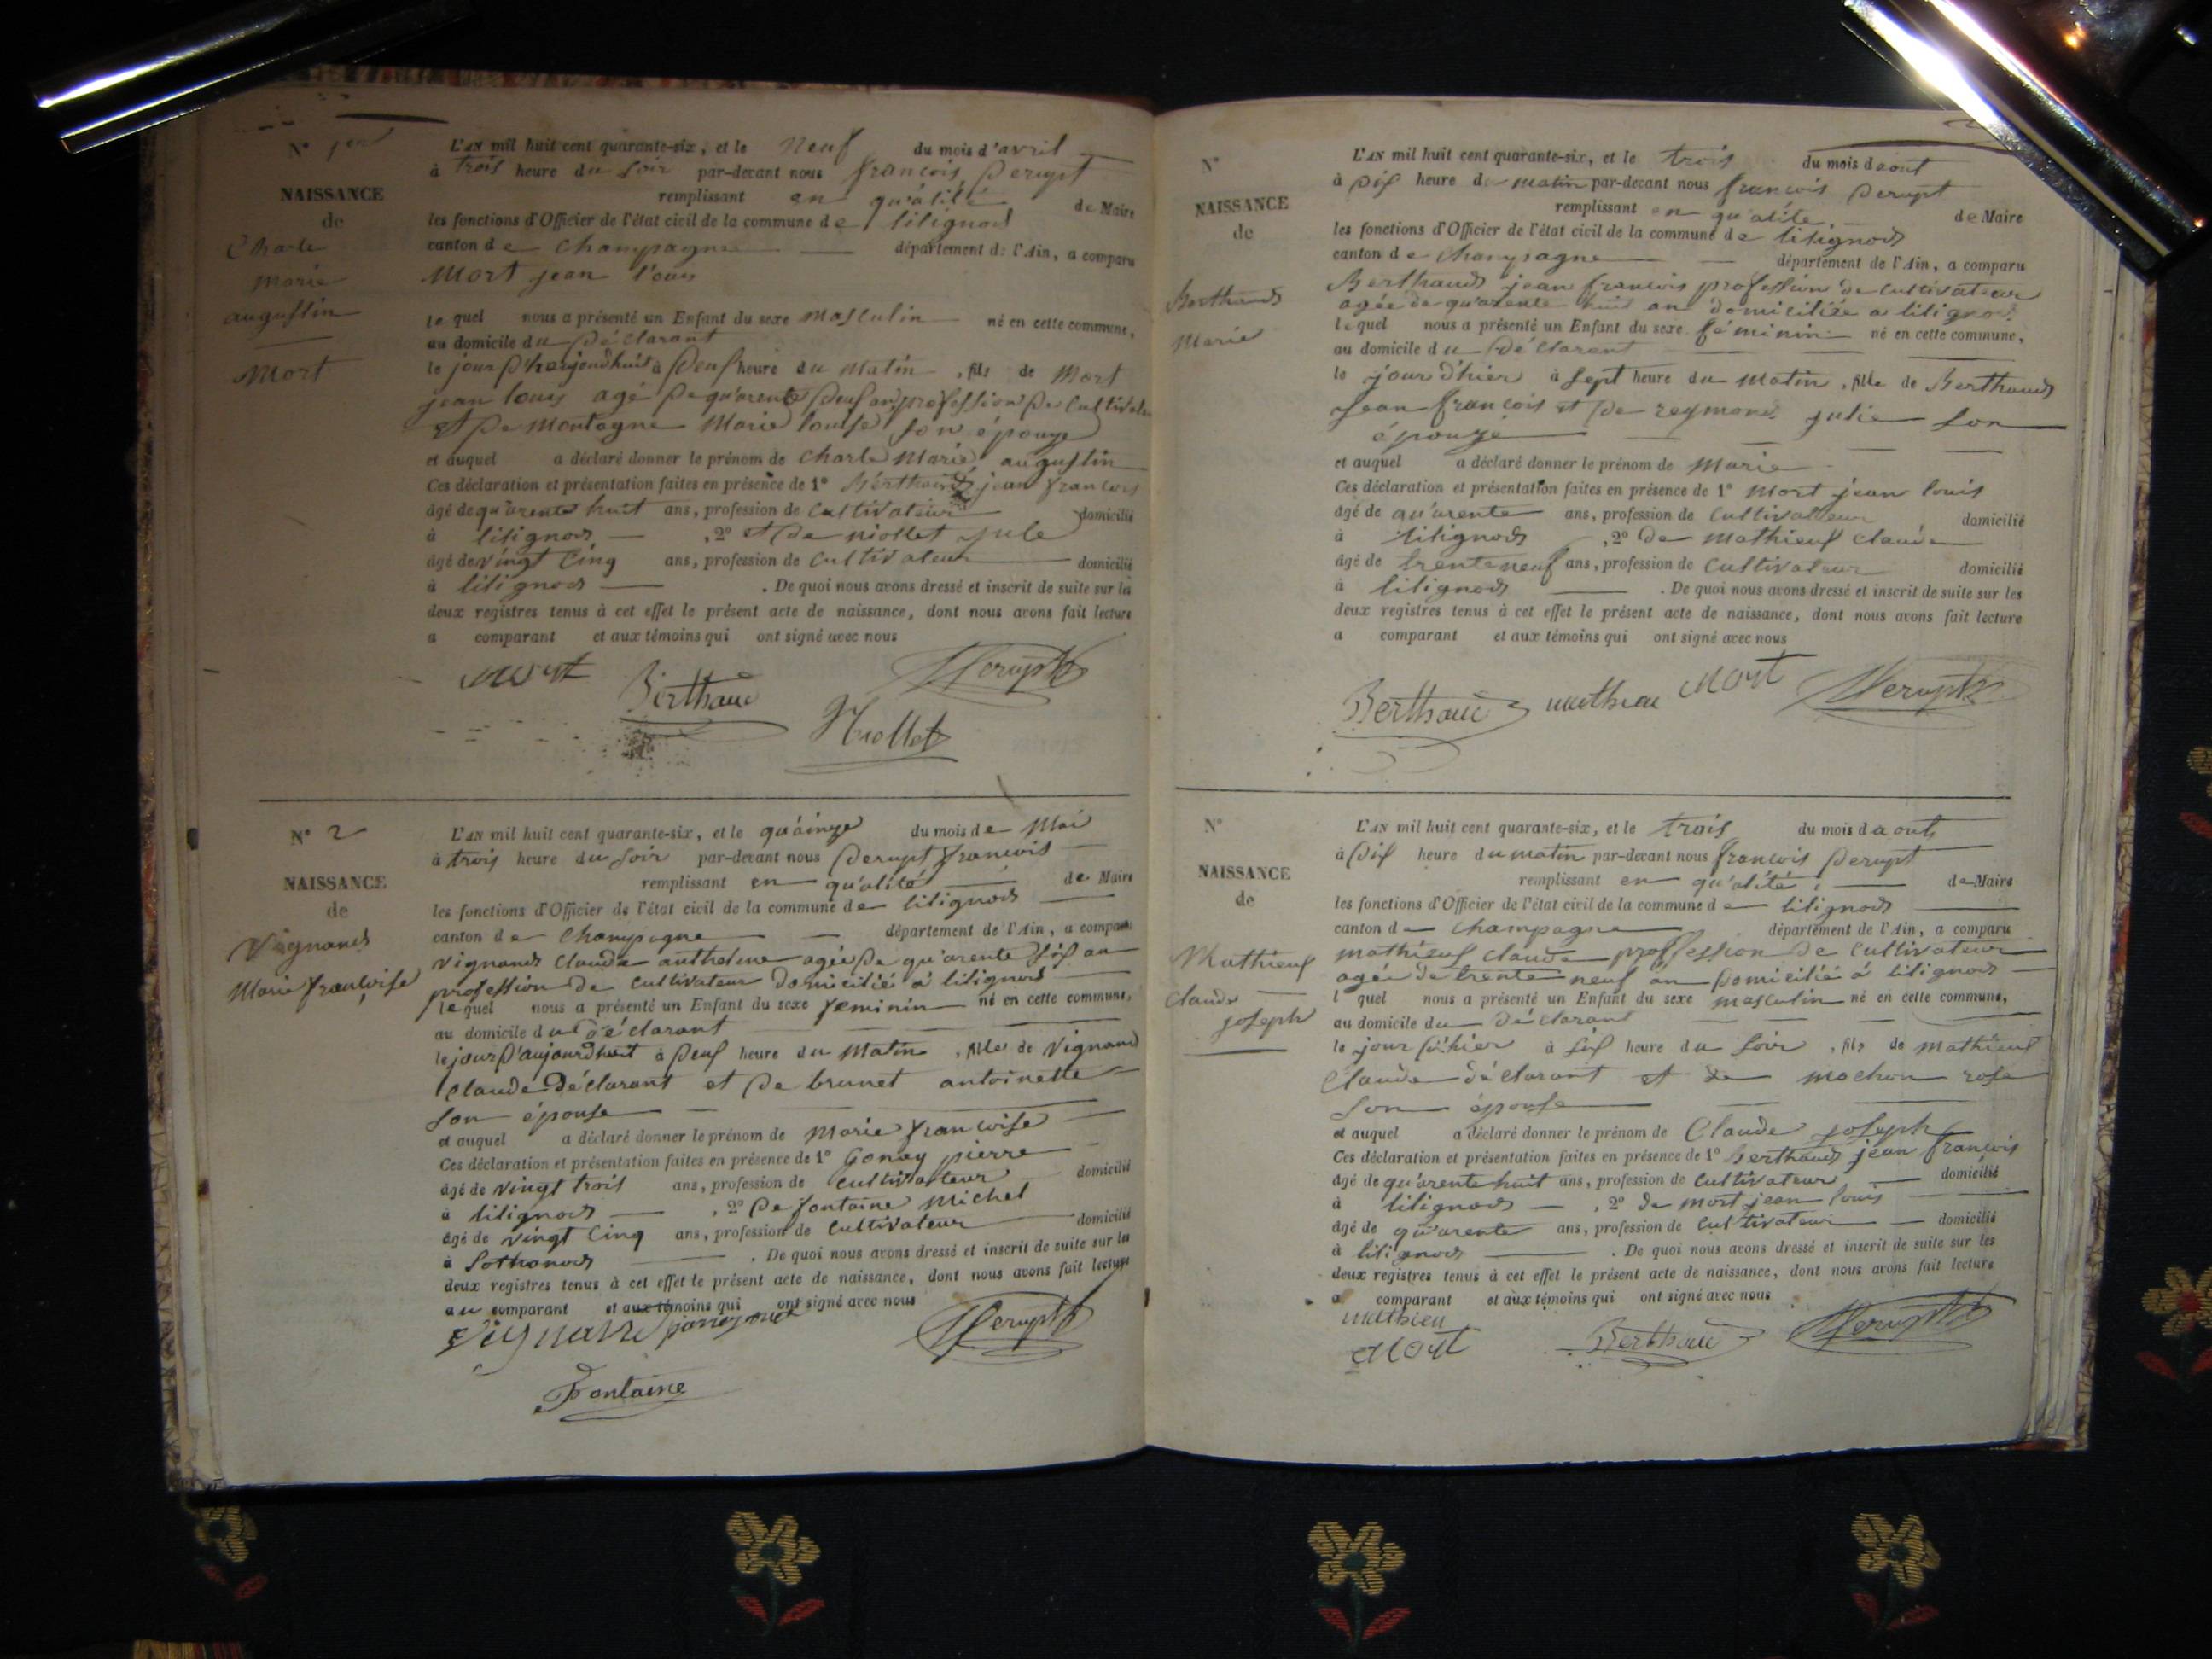 N° 1er
NAISSANCE
de
Charle
marie
augustin
Mort
L'AN mil huit cent quarante-six, et le Neuf du mois d'avril
à trois heure du soir par-devant nous françois Derupt
remplissant en qu'alité de Maire
les fonctions d'Officier de l'état civil de la commune de lilignod
canton de Champagne département de l'Ain, a comparu
Mort jean louis
lequel nous a présenté un Enfant du sexe Masculin né en cette commune,
au domicile du Déclarant
le jour à Deuf heure du Matin, fils de Mort
jean louis agé De qu'arente Deuf an, profession De Cultivateur
et De Montagne Marie louise son épouze
et auquel a déclaré donner le prénom de Charle Marie augustin
Ces déclaration et présentation faites en présence de 1° Berthaud jean françois
âgé de qu'arente huit ans, profession de Cultivateur domicilié
à lilignod , 2° et de niollet Jule
âgé de vingt Cinq ans, profession de Cultivateur domicilié
à lilignod . De quoi nous avons dressé et inscrit de suite sur les
deux registres tenus à cet effet le présent acte de naissance, dont nous avons fait lecture
a comparant et aux témoins qui ont signé avec nous
Mort Berthaud Derupt
Niollet
N° 2
NAISSANCE
de
Vignand
Marie françoise
L'AN mil huit cent quarante-six, et le qu'ainze du mois de Mai
à trois heure du soir par-devant nous Derupt françois
remplissant en qu'alité de Maire
les fonctions d'Officier de l'état civil de la commune de lilignod
canton de Champagne département de l'Ain, a comparu
Vignand Claude anthelme agée De qu'arente sif an
profession De Cultivateur domicilié a lilignod
lequel nous a présenté un Enfant du sexe feminin né en cette commune,
au domicile du Déclarant
le jour D'aujourdhuit à Deuf heure du Matin, fille de Vignand
Claude Déclarant et De brunet antoinette
son épouse
et auquel a déclaré donner le prénom de Marie françoise
Ces déclaration et présentation faites en présence de 1° Gonay pierre
âgé de Vingt trois ans, profession de Cultivateur domicilié
à lilignod , 2° De fontaine Michel
âgé de vingt Cinq ans, profession de Cultivateur domicilié
à Sothonod . De quoi nous avons dressé et inscrit de suite sur les
deux registres tenus à cet effet le présent acte de naissance, dont nous avons fait lecture
au comparant et aux témoins qui ont signé avec nous
Vignand Derupt
Fontaine
N°
NAISSANCE
de
Berthaud
Marie
L'AN mil huit cent quarante-six, et le trois du mois daout
à Dif heure du matin par-devant nous françois Derupt
remplissant en qu'alité de Maire
les fonctions d'Officier de l'état civil de la commune de lilignod
canton de Champagne département de l'Ain, a comparu
Berthaud jean françois profession de Cultivateur
agée de qu'arente huit an domiciliée a lilignod
lequel nous a présenté un Enfant du sexe féminin né en cette commune,
au domicile du Déclarent
le jour d'hier à sept heure du Matin, fille de Berthaud
Jean françois et De reymond julie son
épouze
et auquel a déclaré donner le prénom de Marie
Ces déclaration et présentation faites en présence de 1° Mort jean louis
âgé de qu'arente ans, profession de Cultivateur domicilié
à lilignod , 2° De Mathieuf Claude
âgé de trente neuf ans, profession de Cultivateur domicilié
à lilignod . De quoi nous avons dressé et inscrit de suite sur les
deux registres tenus à cet effet le présent acte de naissance, dont nous avons fait lecture
a comparant et aux témoins qui ont signé avec nous
Berthaud mathieu Mort Derupt
N°
NAISSANCE
de
Mathieuf
Claude
joseph
L'AN mil huit cent quarante-six, et le trois du mois daout
à Dif heure du matin par-devant nous françois Derupt
remplissant en qu'alité de Maire
les fonctions d'Officier de l'état civil de la commune de lilignod
canton de Champagne département de l'Ain, a comparu
mathieuf claude proffession de Cultivateur
agée de trente neuf an Domicilié à lilignod
lequel nous a présenté un Enfant du sexe masculin né en cette commune,
au domicile du Déclarant
le jour d'hier à sif heure du soir, fils de Mathieuf
Claude déclarant et de mochon rose
son épouse
et auquel a déclaré donner le prénom de Claude joseph
Ces déclaration et présentation faites en présence de 1° Berthaud jean françois
âgé de qu'arente huit ans, profession de Cultivateur domicilié
à lilignod , 2° de mort jean louis
âgé de qu'arente ans, profession de Cultivateur domicilié
à lilignod . De quoi nous avons dressé et inscrit de suite sur les
deux registres tenus à cet effet le présent acte de naissance, dont nous avons fait lecture
a comparant et aux témoins qui ont signé avec nous
mathieu
Mort Berthaud Derupt